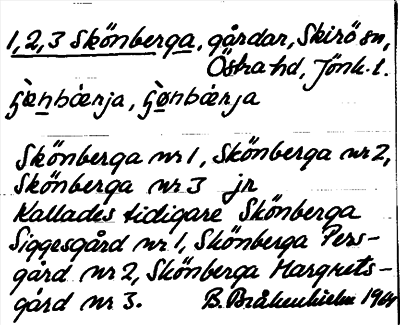 1, 2, 3 Skönberga, gårdar, Skirö sn,
Östra hd, Jönk. l.
Skönberga nr 1, Skönberga nr 2,
Skönberga nr 3 jr
Kallades tidigare Skönberga
Siggesgård nr 1, Skönberga Pers-
gård nr 2, Skönberga Margrets-
gård nr 3. B.